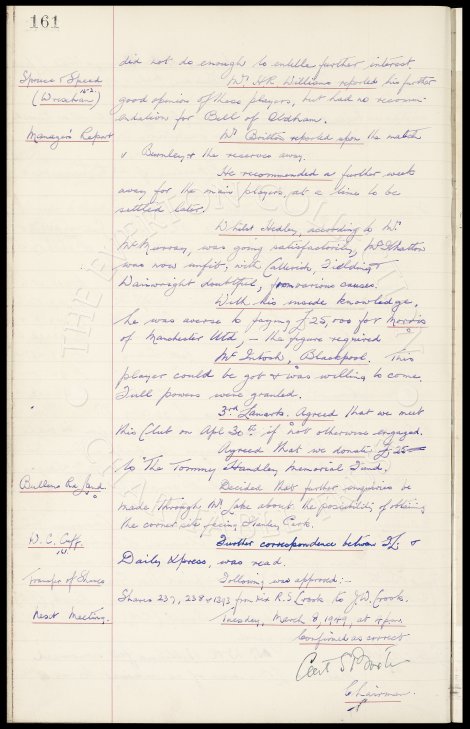 161
did not do enough to entitle further interest.
Spruce & Speed
(Wrexham)
Mr H.R. Williams reported his further
good opinion of these players, but had no recom-
mendation for Bell of Oldham.
Manager's Report
Mr Britton reported upon the match
v Burnley & the reserves away.
He recommended a further week
away for the main players at a time to be
settled later.
Whilst Hedley, according to Mr
McMurray, was going satisfactorily,
was now unfit, with Fielding &
Wainwright doubtful, from various causes.
With his inside knowledge,
he was averse to paying £25,000 for Morris
of Manchester Utd, – the figure required
McIntosh, Blackpool. This
player could be got & was willing to come.
Full powers were granted.
3rd Lanark. Agreed that we meet
this Club on Apl 30th if not otherwise engaged.
Agreed that we donate £25
to "The Tommy Handley Memorial Fund.
Bullens Rd Land
Decided that further enquiries be
made through Mr Lake about the possibility of obtaining
the corner site facing Stanley Park.
W. C. Cuff
Further correspondence between &
Daily Xpress, was read.
Transfer of Shares
Following was approved:-
Shares 237, 238 & 1393 from R.S Crooks to J.W. Crooks.
Next Meeting.
Tuesday, March 8, 1949, at 4 p.m.
Confirmed as correct
Chairman